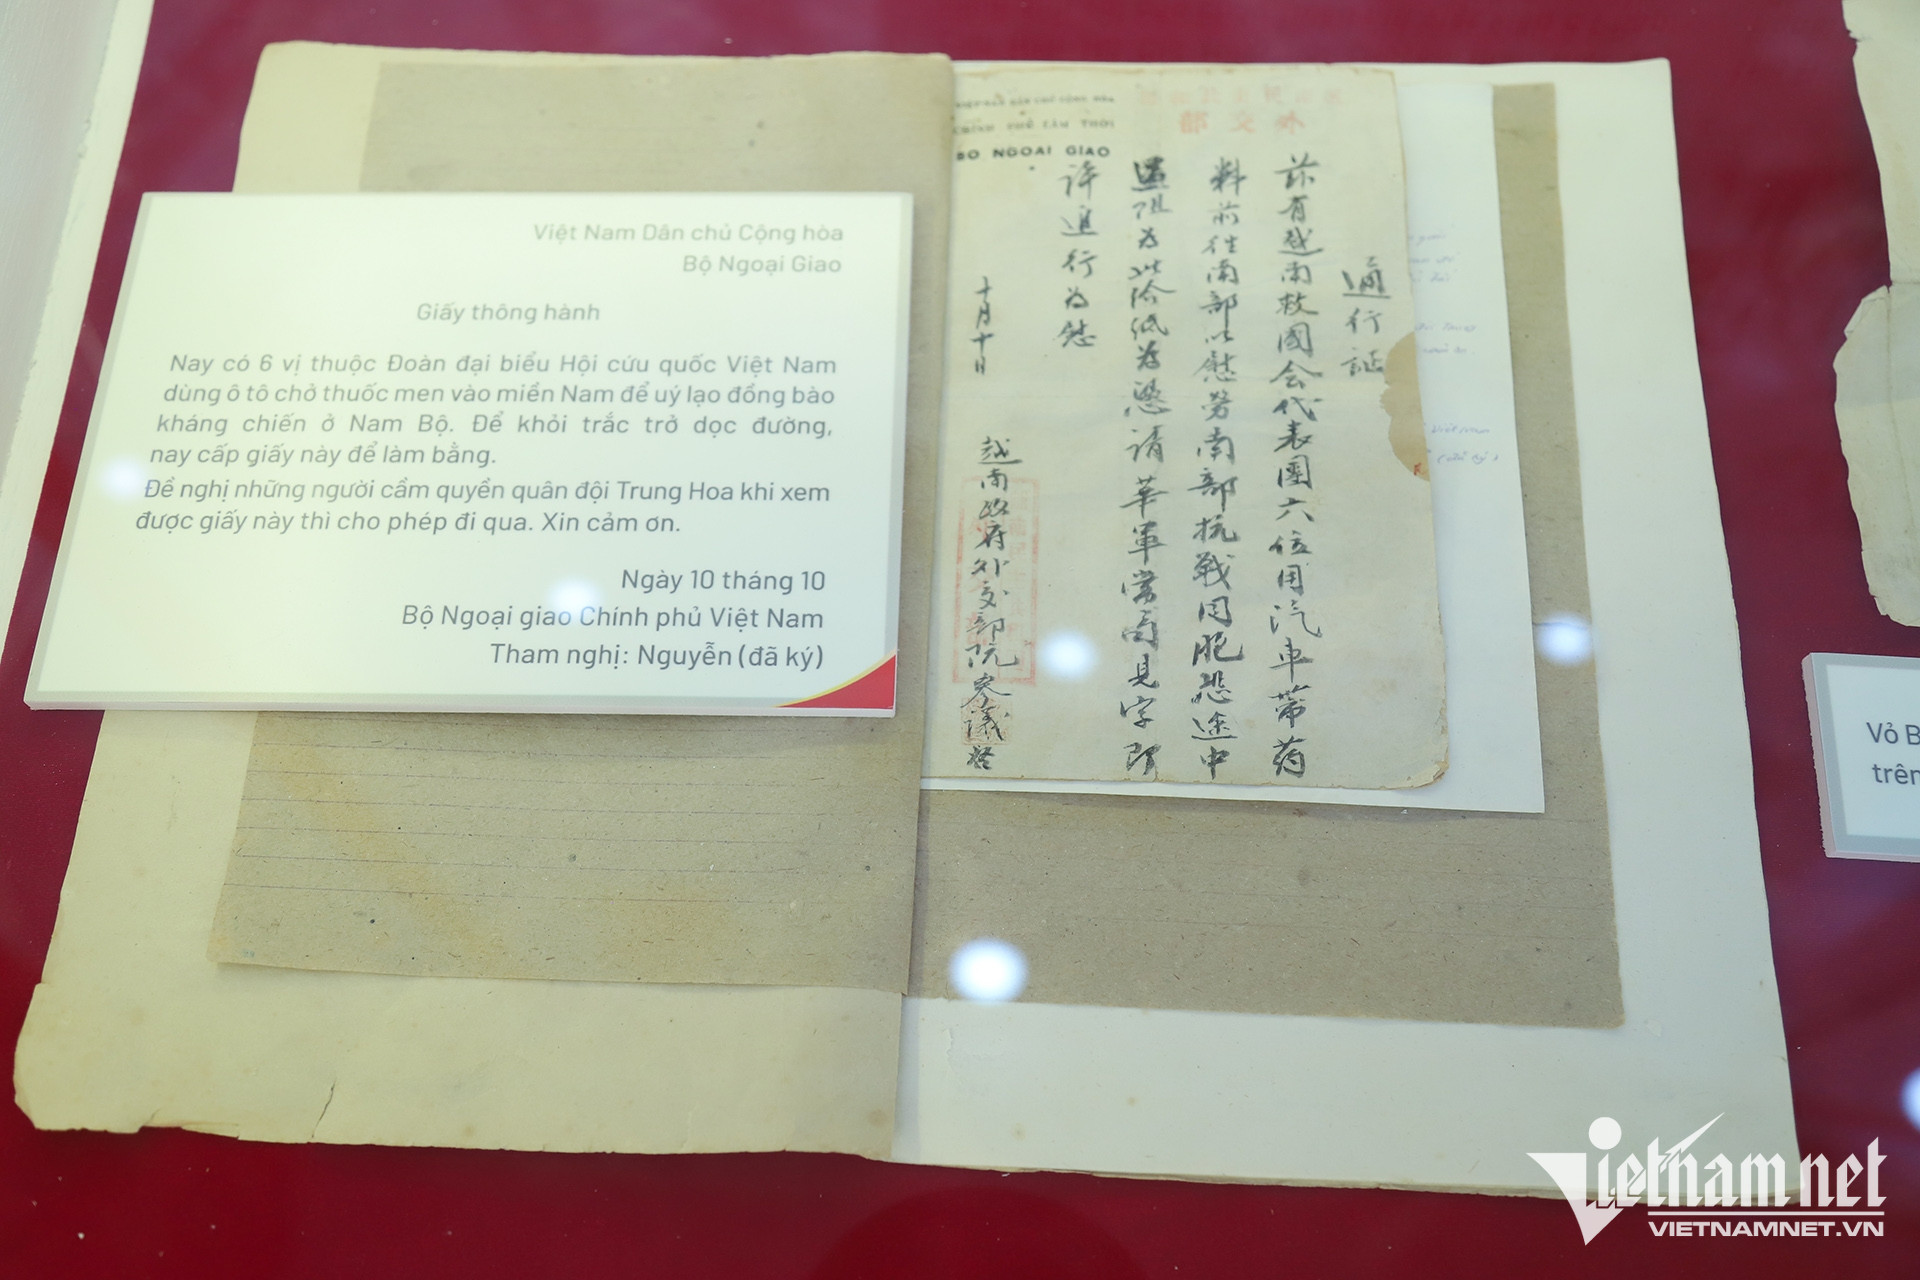 Việt Nam Dân chủ Cộng hòa
Bộ Ngoại Giao
Giấy thông hành
Nay có 6 vị thuộc Đoàn đại biểu Hội cứu quốc Việt Nam
dùng ô tô chở thuốc men vào miền Nam để uý lạo đồng bào
kháng chiến ở Nam Bộ. Để khỏi trắc trở dọc đường,
nay cấp giấy này để làm bằng.
Đề nghị những người cầm quyền quân đội Trung Hoa khi xem
được giấy này thì cho phép đi qua. Xin cảm ơn.
Ngày 10 tháng 10
Bộ Ngoại giao Chính phủ Việt Nam
Tham nghị: Nguyễn (đã ký)
VIỆT-NAM DÂN CHỦ CỘNG HÒA
CHÍNH PHỦ LÂM THỜI
BO NGOAI GIAO
外交部
通行証
茲有越南救國会代表團六位用汽車带药
料前往南部以慰劳南部抗戰同胞恐途中
遇阻为此给纸为憑請華軍當局見字即
許通行为慰
十月十日
越南政府外交部阮参議
Vỏ B
trên
Vietnamnet
VIETNAMNET.VN